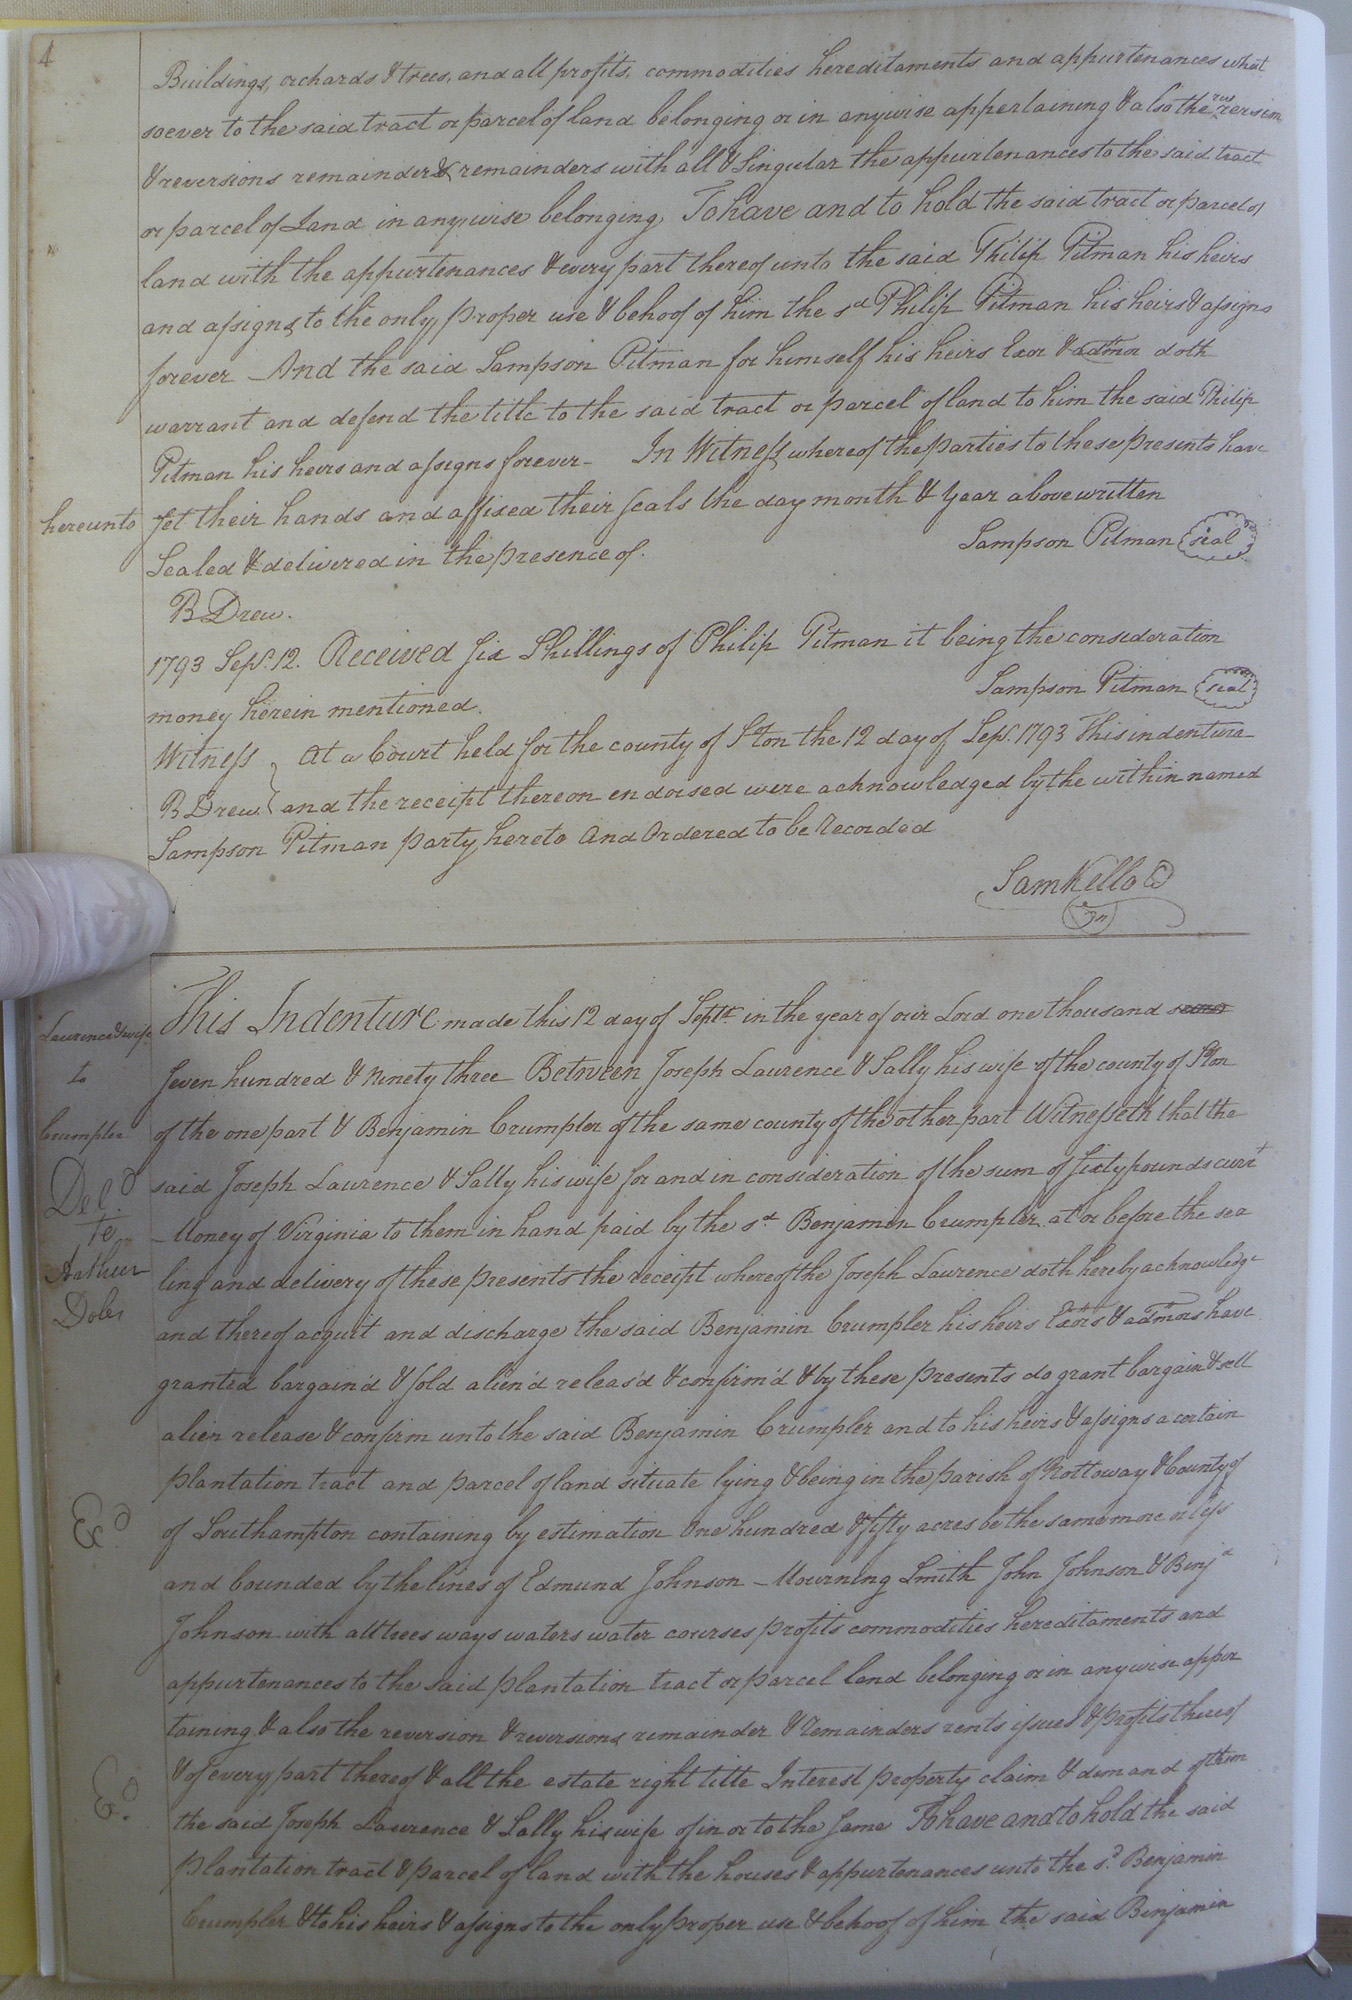 4
Buildings, orchards & trees, and all profits, commodities hereditaments and appurtenances what
soever to the said tract or parcel of land belonging or in anywise appertaining & also the rev rersion
& reversions remainder & remainders with all & Singular the appurtenances to the said tract
or parcel of Land in anywise belonging, To have and to hold the said tract or parcel of
land with the appurtenances & every part thereof unto the said Philip Pitman his heirs
and assigns to the only proper use & behoof of him the sd Philip Pitman his heirs & assigns
forever - And the said Sampson Pitman for himself his heirs Exor & admor doth
warrant and defend the title to the said tract or parcel of land to him the said Philip
Pitman his heirs and assigns forever - In Witness whereof the parties to these presents have
hereunto set their hands and affixed their seals the day month & Year above written
Sealed & delivered in the presence of. Sampson Pitman seal
B Drew.
1793 Sept. 12. Received six Shillings of Philip Pitman it being the consideration
money herein mentioned. Sampson Pitman seal
Witness } At a Court held for the county of Soton the 12 day of Sept. 1793 This indenture
B Drew. } and the receipt thereon endorsed were acknowledged by the within named
Sampson Pitman party hereto And Ordered to be Recorded
Sam Kello C
This Indenture made this 12 day of Septr. in the year of our Lord one thousand
Laurence & wife
to
Crumpler
Seven hundred & Ninety three Between Joseph Laurence & Sally his wife of the county of Soton
of the one part & Benjamin Crumpler of the same county of the other part Witnesseth that the
said Joseph Laurence & Sally his wife for and in consideration of the sum of sixty pounds currt
Deld
to
Arthur
Doles
Money of Virginia to them in hand paid by the sd Benjamin Crumpler at or before the sea
ling and delivery of these presents the receipt whereof the Joseph Laurence doth hereby acknowledge
and thereof acquit and discharge the said Benjamin Crumpler his heirs Exors & admors have
granted bargain'd & sold alien'd releas'd & confirm'd & by these presents do grant bargain & sell
alien release & confirm unto the said Benjamin Crumpler and to his heirs & assigns a certain
plantation tract and parcel of land situate lying & being in the parish of Nottoway & County of
Ed
of Southampton containing by estimation One hundred & fifty acres be the same more or less
and bounded by the lines of Edmund Johnson - Mourning Smith John Johnson & Benja
Johnson with all trees ways waters water courses profits commodities hereditaments and
appurtenances to the said plantation tract or parcel land belonging or in anywise apper
taining & also the reversion & reversions remainder & remainders rents issues & profits thereof
& of every part thereof & all the estate right title Interest property claim & demand of them
Ed.
the said Joseph Laurence & Sally his wife of in or to the same To have and to hold the said
plantation tract & parcel of land with the houses & appurtenances unto the sd Benjamin
Crumpler & to his heirs & assigns to the only proper use & behoof of him the said Benjamin